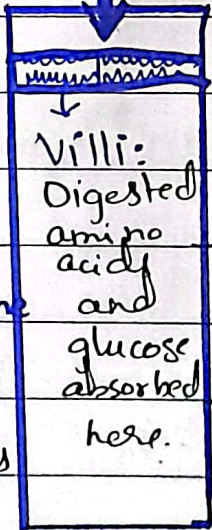 Villi:
Digested
amino
acids
and
glucose
absorbed
here.